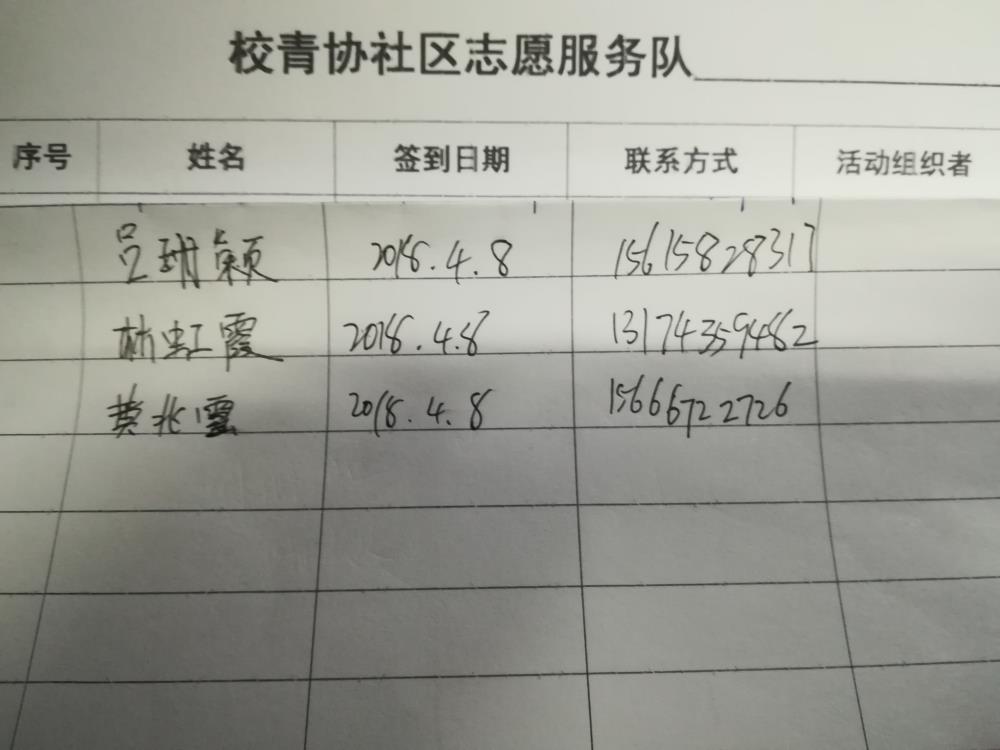 校青协社区志愿服务队
序号 姓名 签到日期 联系方式 活动组织者
吕玥颖 2018.4.8 15615828317
林虹霞 2018.4.8 13174359482
2018.4.8 15666722726